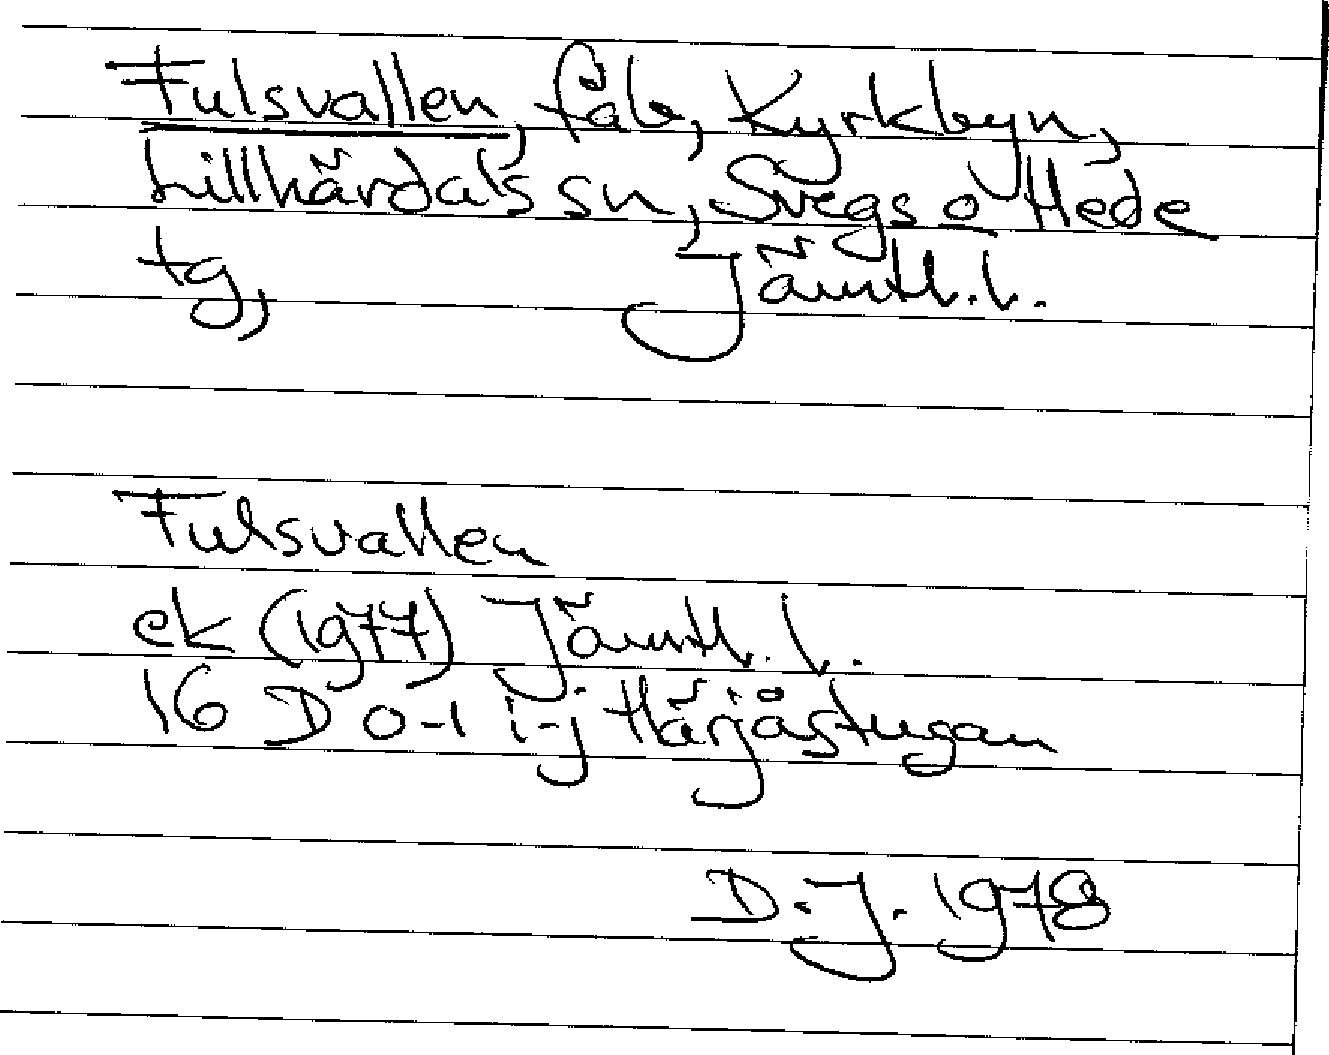 Fulsvallen, fäb, Kyrkbyn,
Lillhärdals sn, Svegs o Hede
tg, Jämtl. l.
Fulsvallen
ek (1977) Jämtl. l.
16 D 0-1 i-j Härjåstugan
D.J. 1978